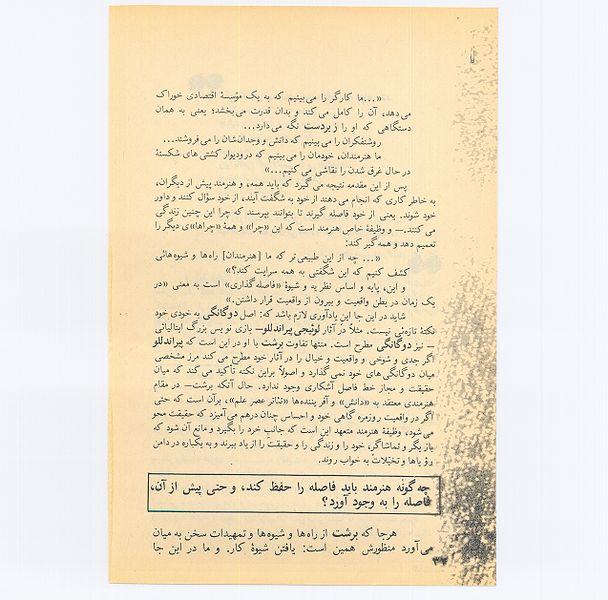 «...ما کارگر را می‌بینیم که به یک مؤسسهٔ اقتصادی خوراک
می‌دهد، آن را کامل می‌کند و بدان قدرت می‌بخشد؛ یعنی به همان
دستگاهی که او را زیردست نگه می‌دارد...
روشنفکران را می‌بینیم که دانش و وجدان‌شان را می‌فروشند...
ما هنرمندان، خودمان را می‌بینیم که در و دیوار کشتی‌های شکستهٔ
در حال غرق شدن را نقاشی می‌کنیم...»
پس از این مقدمه نتیجه می‌گیرد که باید همه، و هنرمند پیش از دیگران،
به خاطر کاری که انجام می‌دهند از خود به شگفت آیند، از خود سؤال کنند و داور
خود شوند. یعنی از خود فاصله گیرند تا بتوانند بپرسند که چرا این چنین زندگی
می‌کنند.— و وظیفهٔ خاص هنرمند است که این «چرا» و همهٔ «چراها»ی دیگر را
تعمیم دهد و همه‌گیر کند:
«... چه از این طبیعی‌تر که ما [هنرمندان] راه‌ها و شیوه‌هائی
کشف کنیم که این شگفتی به همه سرایت کند؟»
و این، پایه و اساس نظریه و شیوهٔ «فاصله‌گذاری» است به معنی «در
یک زمان در بطن واقعیت و بیرون از واقعیت قرار داشتن.»
شاید در این جا این یادآوری لازم باشد که: اصل دوگانگی به خودی خود
نکتهٔ تازه‌ئی نیست. مثلاً در آثار لوئیجی پیراندللو— بازی نویس بزرگ ایتالیائی
— نیز دوگانگی مطرح است. منتها تفاوت برشت با او در این است که پیراندللو
اگر جدی و شوخی و واقعیت و خیال را در آثار خود مطرح می‌کند مرز مشخصی
میان دوگانگی‌های خود نمی‌گذارد و اصولاً بر این نکته تأکید می‌کند که میان
حقیقت و مجاز خط فاصل آشکاری وجود ندارد. حال آنکه برشت— در مقام
هنرمندی معتقد به «دانش» و آفریننده‌ها «تئاتر عصر علم»، برآن است که حتی
اگر در واقعیت روزمره گاهی خود و احساس چنان درهم می‌آمیزد که حقیقت محو
می‌شود، وظیفهٔ هنرمند متعهد این است که جانب خرد را بگیرد و مانع آن شود که
بازیگر و تماشاگر، خود را و زندگی را و حقیقت را از یاد ببرند و به یکباره در دامن
رؤیاها و تخیّلات به خواب روند.
چه گونه هنرمند باید فاصله را حفظ کند، و حتی پیش از آن،
فاصله را به وجود آورد؟
هرجا که برشت از راه‌ها و شیوه‌ها و تمهیدات سخن به میان
می‌آورد منظورش همین است: یافتن شیوهٔ کار. و ما در این جا